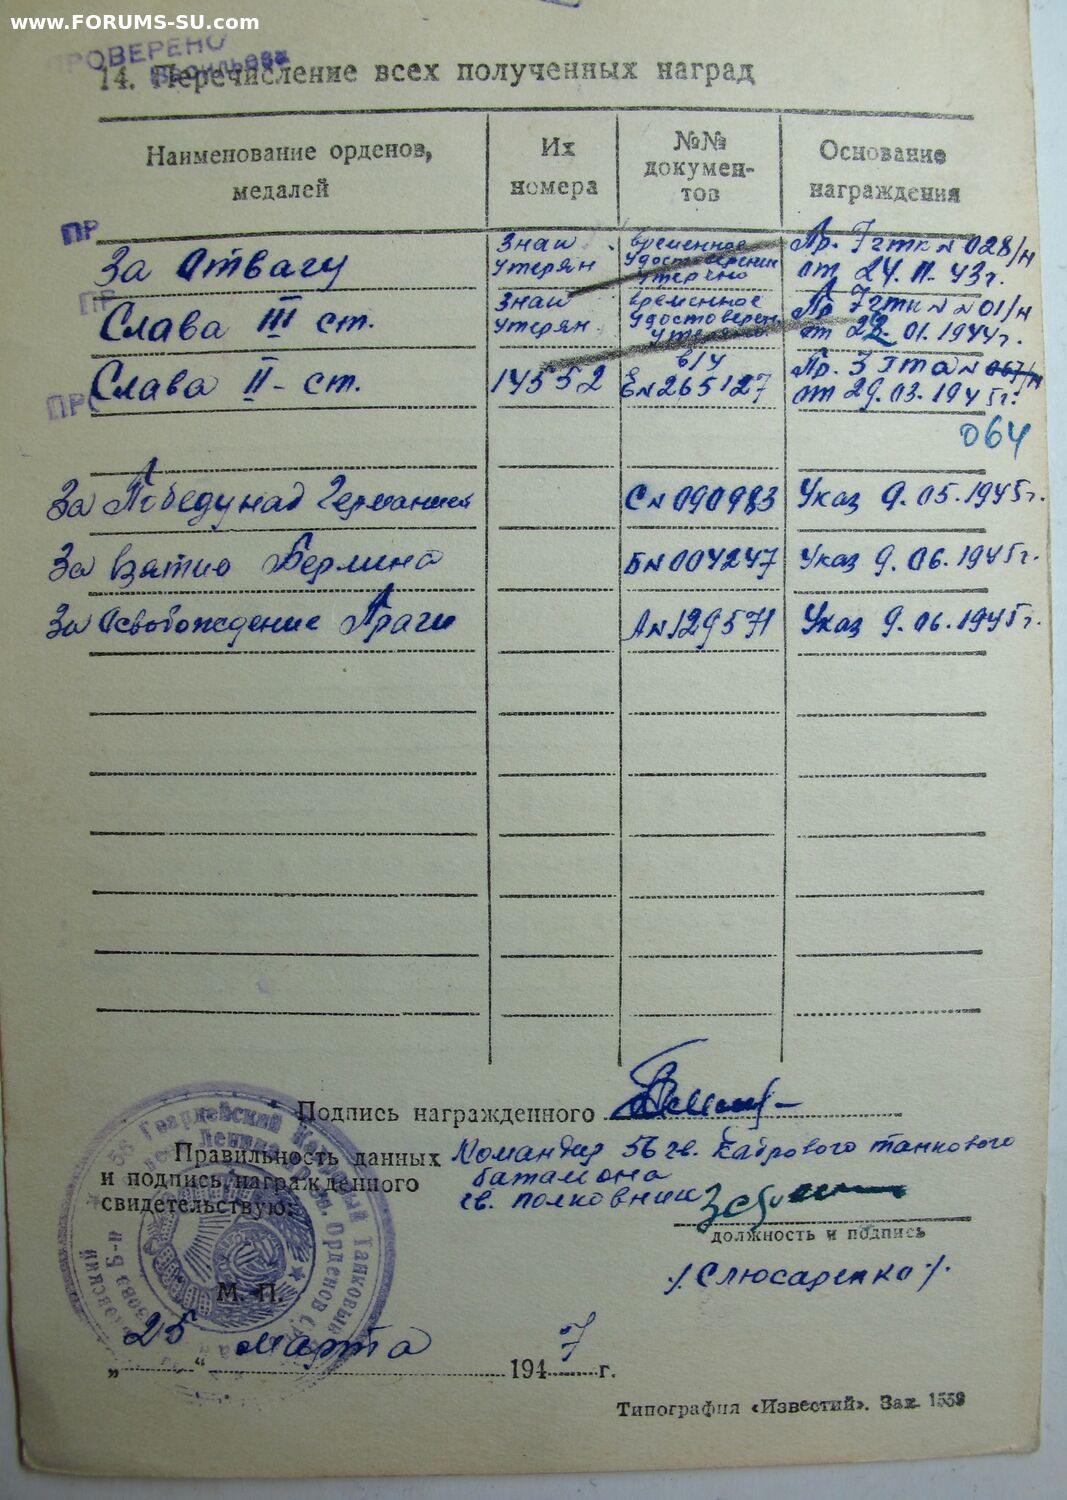 www.FORUMS-SU.com
ПРОВЕРЕНО
14. Перечисление всех полученных наград
Наименование орденов, медалей
Их номера
№№ документов
Основание награждения
ПР
За Отвагу
Знак утерян
временное удостоверение утеряно
Пр. 7гтк № 028/н от 24.11.43г.
ПР
Слава III ст.
Знак утерян.
временное удостоверен. утеряно
Пр 7гтк № 01/н от 22.01.1944г.
ПРО
Слава II-ст.
14552
в/у Е№265127
Пр. 3 гта № 067/н от 29.03.1945г.
064
За Победу над Германией
С№090983
Указ 9.05.1945г.
За взятие Берлина
Б№004247
Указ 9.06.1945г.
За Освобождение Праги
А№129571
Указ 9.06.1945г.
Подпись награжденного
Правильность данных
и подпись награжденного
свидетельствую:
Командир 56 гв. Кадрового танкового
батальона
гв. полковник
должность и подпись
/Слюсаренко/.
М. П.
„25“ марта 1947 г.
56 Гвардейский Кадровый Танковый
Орденов
Типография «Известий». Зак. 1559